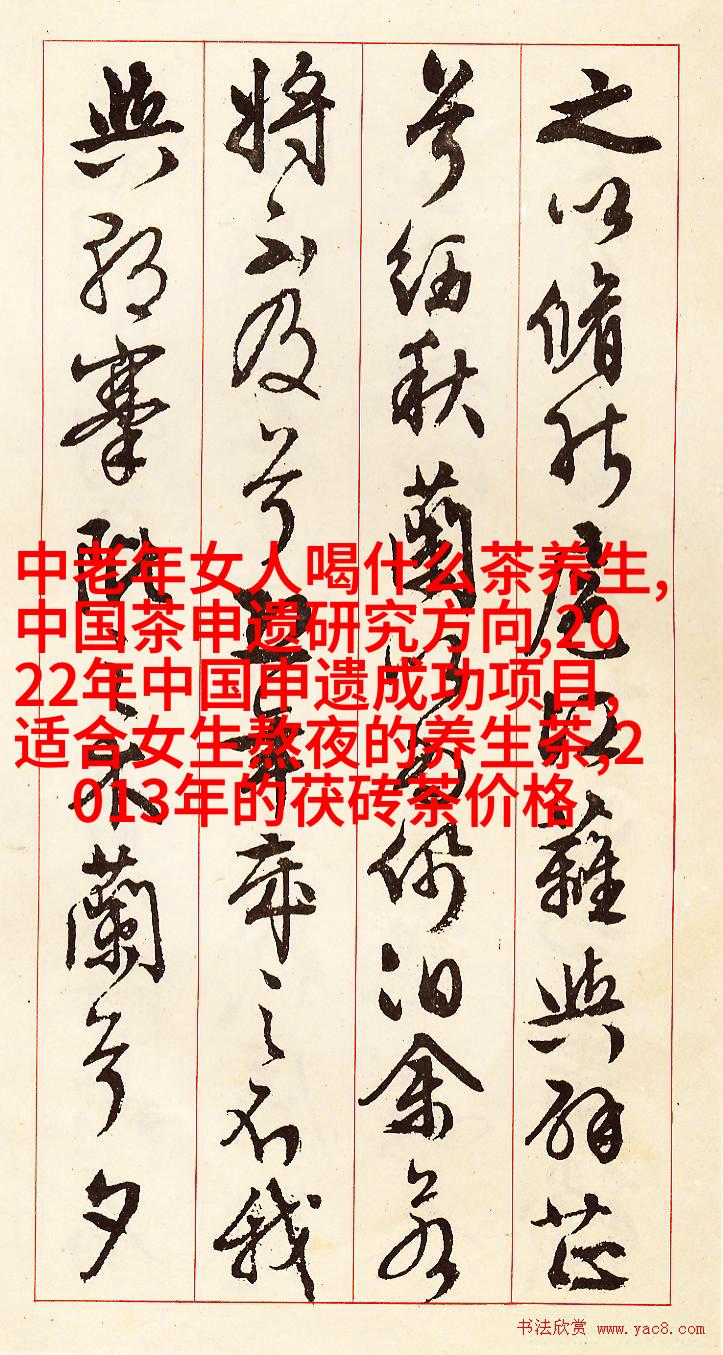 之以脩能扈江蘺與辟芷
兮紉秋蘭以為佩汩余若
將不及兮恐年歲之不我
與朝搴阰之木蘭兮夕
中老年女人喝什么茶养生,
中国茶申遗研究方向,20
22年中国申遗成功项目,
适合女生熬夜的养生茶,2
013年的茯砖茶价格
书法欣赏 www.yac8.com